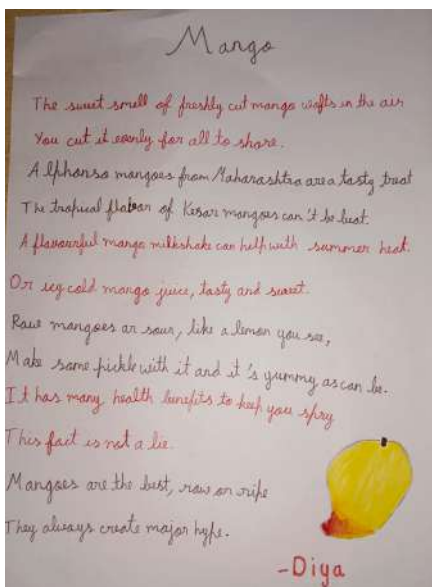 Mango
The sweet smell of freshly cut mango wafts in the air
You cut it evenly for all to share.
Alphonso mangoes from Maharashtra are a tasty treat
The tropical flavour of Kesar mangoes can't be beat.
A flavourful mango milkshake can help with summer heat.
Or icy cold mango juice, tasty and sweet.
Raw mangoes ar sour, like a lemon you see,
Make some pickle with it and it's yummy as can be.
It has many health benefits to keep you spry
This fact is not a lie.
Mangoes are the best, raw or ripe
They always create major hype.
-Diya